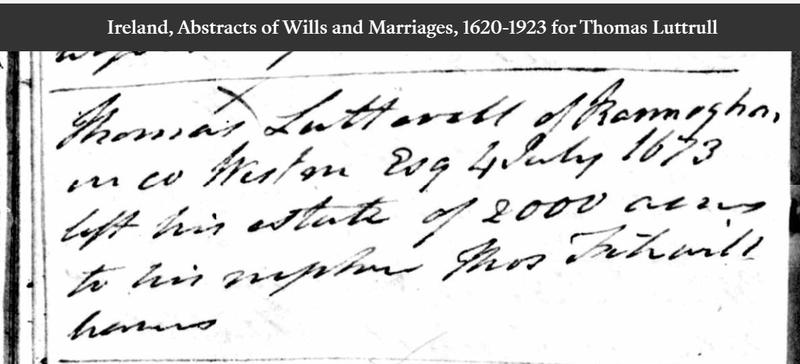 Ireland, Abstracts of Wills and Marriages, 1620-1923 for Thomas Luttrull
Thomas Lutterell of Rannoghan
in co Westm Esq 4 July 1673
left his estate of 2000 acres
to his nephew Thos Fitzwill